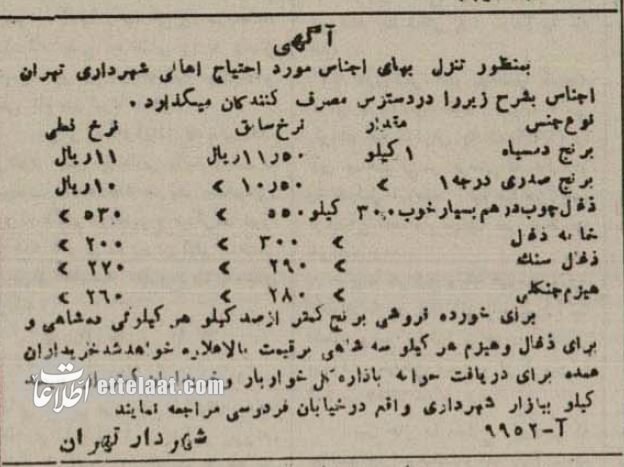 آگهی
بمنظور تنزل بهای اجناس مورد احتیاج اهالی شهرداری تهران
اجناس بشرح زیررا دردسترس مصرف کنندگان میگذارد.
نوع جنس مقدار نرخ سابق نرخ فعلی
برنج دمسیاه ۱ کیلو ۵۰ر۱۱ریال ۱۱ریال
برنج صدری درجه ۱ > ۵۰ر۱۰ > ۱۰ریال
ذغال چوب درهم بسیار خوب ۳۰۰ کیلو ۵۵۰ > ۵۳۰ >
خا که ذغال > ۳۰۰ > ۲۰۰ >
ذغال سنگ > ۲۹۰ > ۲۷۰ >
هیزم جنگلی > ۲۸۰ > ۲۶۰ >
برای خورده فروشی برنج کمتر ازصد کیلو هر کیلوئی ده شاهی و
برای ذغال وهیزم هر کیلو سه شاهی برقیمت بالاعلاوه خواهد شد خریداران
عمده برای دریافت حواله باداره کل خواربار و
کیلو ببازار شهرداری واقع درخیابان فردوسی مراجعه نمایند
۹۹۵۲-T شهردار تهران
اطلاعات ettelaat.com